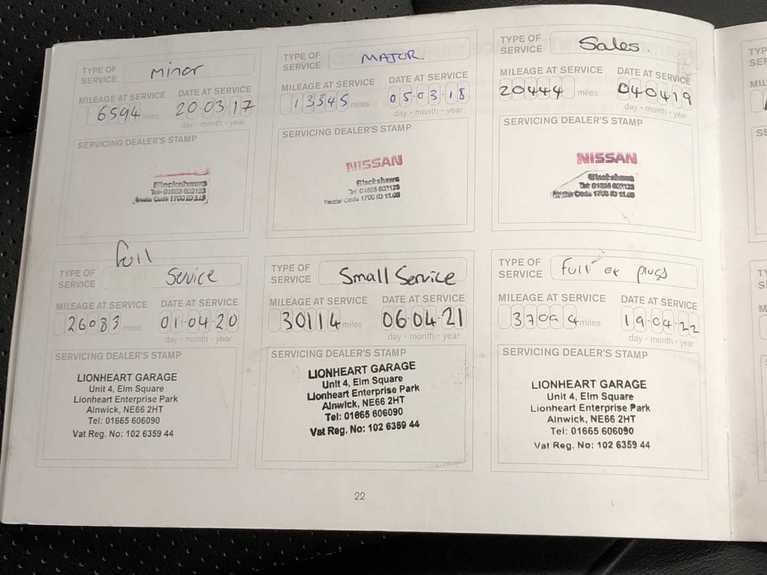 TYPE OF SERVICE Minor
MILEAGE AT SERVICE DATE AT SERVICE
6594 miles 20 03 17
day - month - year
SERVICING DEALER'S STAMP
Blackshaws
TYPE OF SERVICE MAJOR
MILEAGE AT SERVICE DATE AT SERVICE
13545 miles 05 03 18
day - month - year
SERVICING DEALER'S STAMP
NISSAN
Blackshaws
TYPE OF SERVICE Sales.
MILEAGE AT SERVICE DATE AT SERVICE
20444 miles 04 04 19
day - month - year
SERVICING DEALER'S STAMP
NISSAN
Blackshaws
TYPE OF SERVICE Full Service
MILEAGE AT SERVICE DATE AT SERVICE
26083 miles 01 04 20
day - month - year
SERVICING DEALER'S STAMP
LIONHEART GARAGE
Unit 4, Elm Square
Lionheart Enterprise Park
Alnwick, NE66 2HT
Tel: 01665 606090
Vat Reg. No: 102 6359 44
TYPE OF SERVICE Small Service
MILEAGE AT SERVICE DATE AT SERVICE
30114 miles 06 04 21
day - month - year
SERVICING DEALER'S STAMP
LIONHEART GARAGE
Unit 4, Elm Square
Lionheart Enterprise Park
Alnwick, NE66 2HT
Tel: 01665 606090
Vat Reg. No: 102 6359 44
TYPE OF SERVICE Full & plugs
MILEAGE AT SERVICE DATE AT SERVICE
miles 19 04 22
day - month - year
SERVICING DEALER'S STAMP
LIONHEART GARAGE
Unit 4, Elm Square
Lionheart Enterprise Park
Alnwick, NE66 2HT
Tel: 01665 606090
Vat Reg. No: 102 6359 44
22